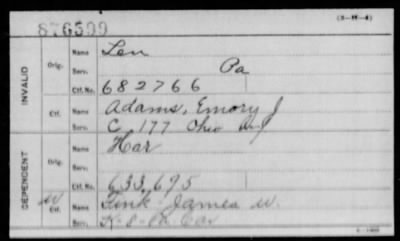 876599
(3-1111-4)
INVALID
Orig.
Name Len
Serv. Pa
Ctf. No. 682766
Ctf.
Name Adams, Emory J
Serv. C 177 Ohio Inf
DEPENDENT
Orig.
Name Har
Serv.
Ctf. No. 633,695
W
Ctf.
Name Link James W.
Serv. K-8-Pa. Cav